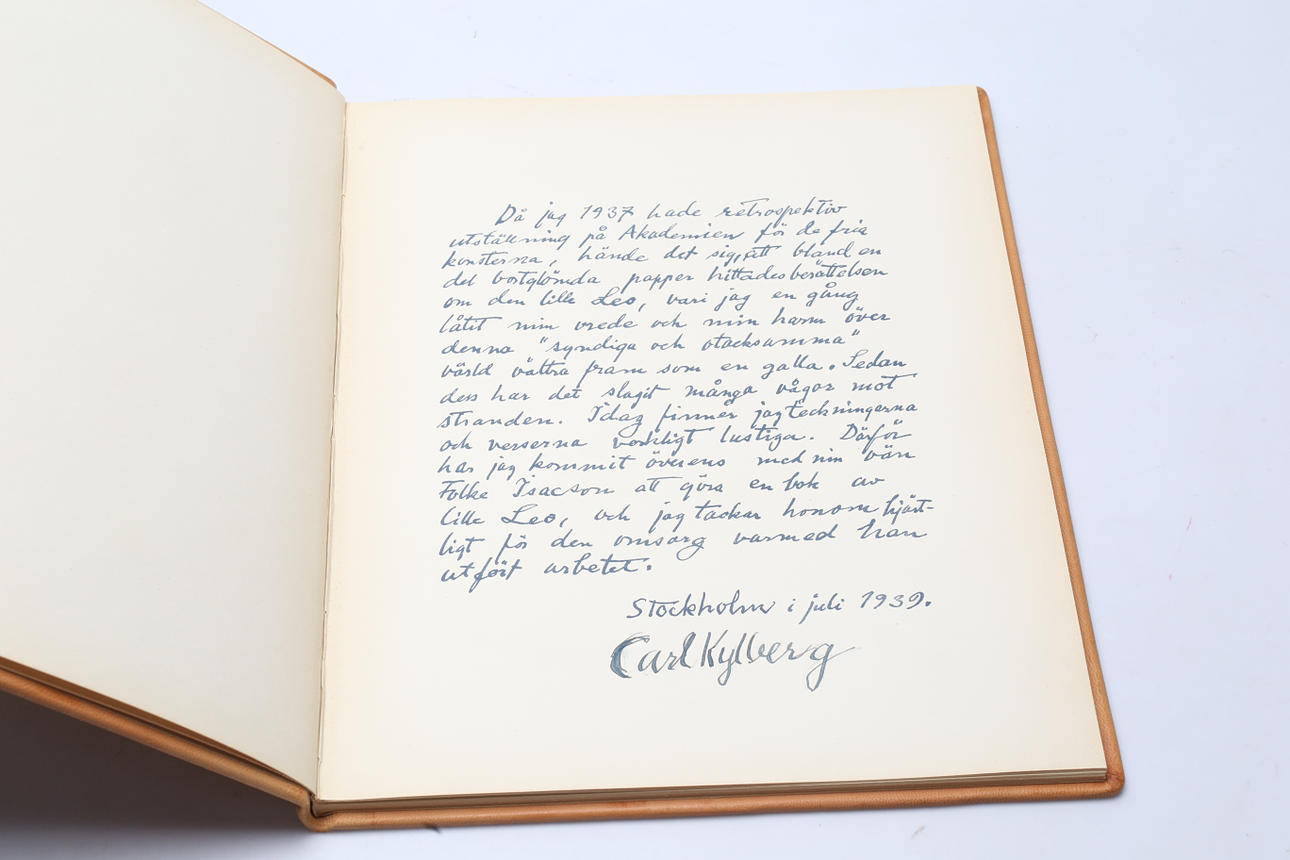 Då jag 1937 hade retrospektiv
utställning på Akademien för de fria
konsterna, hände det sig, att bland en
del bortglömda papper hittades berättelsen
om den lille Leo, vari jag en gång
låtit min vrede och min harm över
denna "syndiga och otacksamma"
värld vältra fram som en galla. Sedan
dess har det slagit många vågor mot
stranden. Idag finner jag teckningarna
och verserna verkligt lustiga. Därför
har jag kommit överens med min vän
Folke Isacson att göra en bok av
lille Leo, och jag tackar honom hjärt-
ligt för den omsorg varmed han
utfört arbetet.
Stockholm i juli 1939.
Carl Kylberg